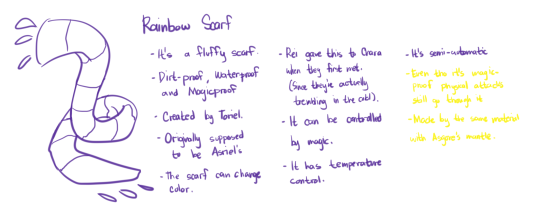 Rainbow Scarf
- It's a fluffy scarf.
- Dirt-proof, Waterproof
and Magicproof
- Created by Toriel.
- Originally supposed
to be Asriel's
- The scarf can change
color.
- Rei gave this to Chara
when they first met.
(Since they're actually
trembling in the cold).
- It can be controlled
by magic.
- It has temperature
control.
- It's semi-automatic
- Even tho it's magic-
proof, physical attacks
still go through it
- Made by the same material
with Asgore's mantle.